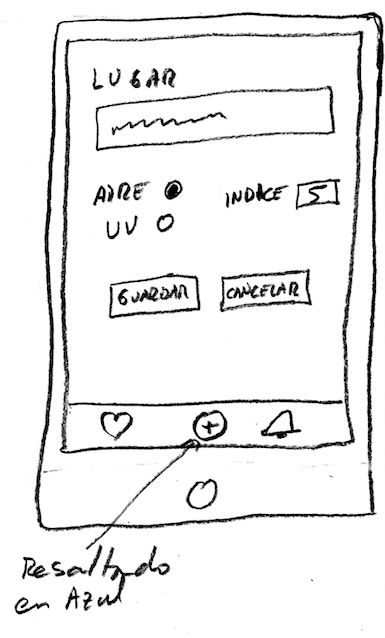 LUGAR
AIRE
INDICE 5
UV
GUARDAR CANCELAR
Resaltado
en Azul